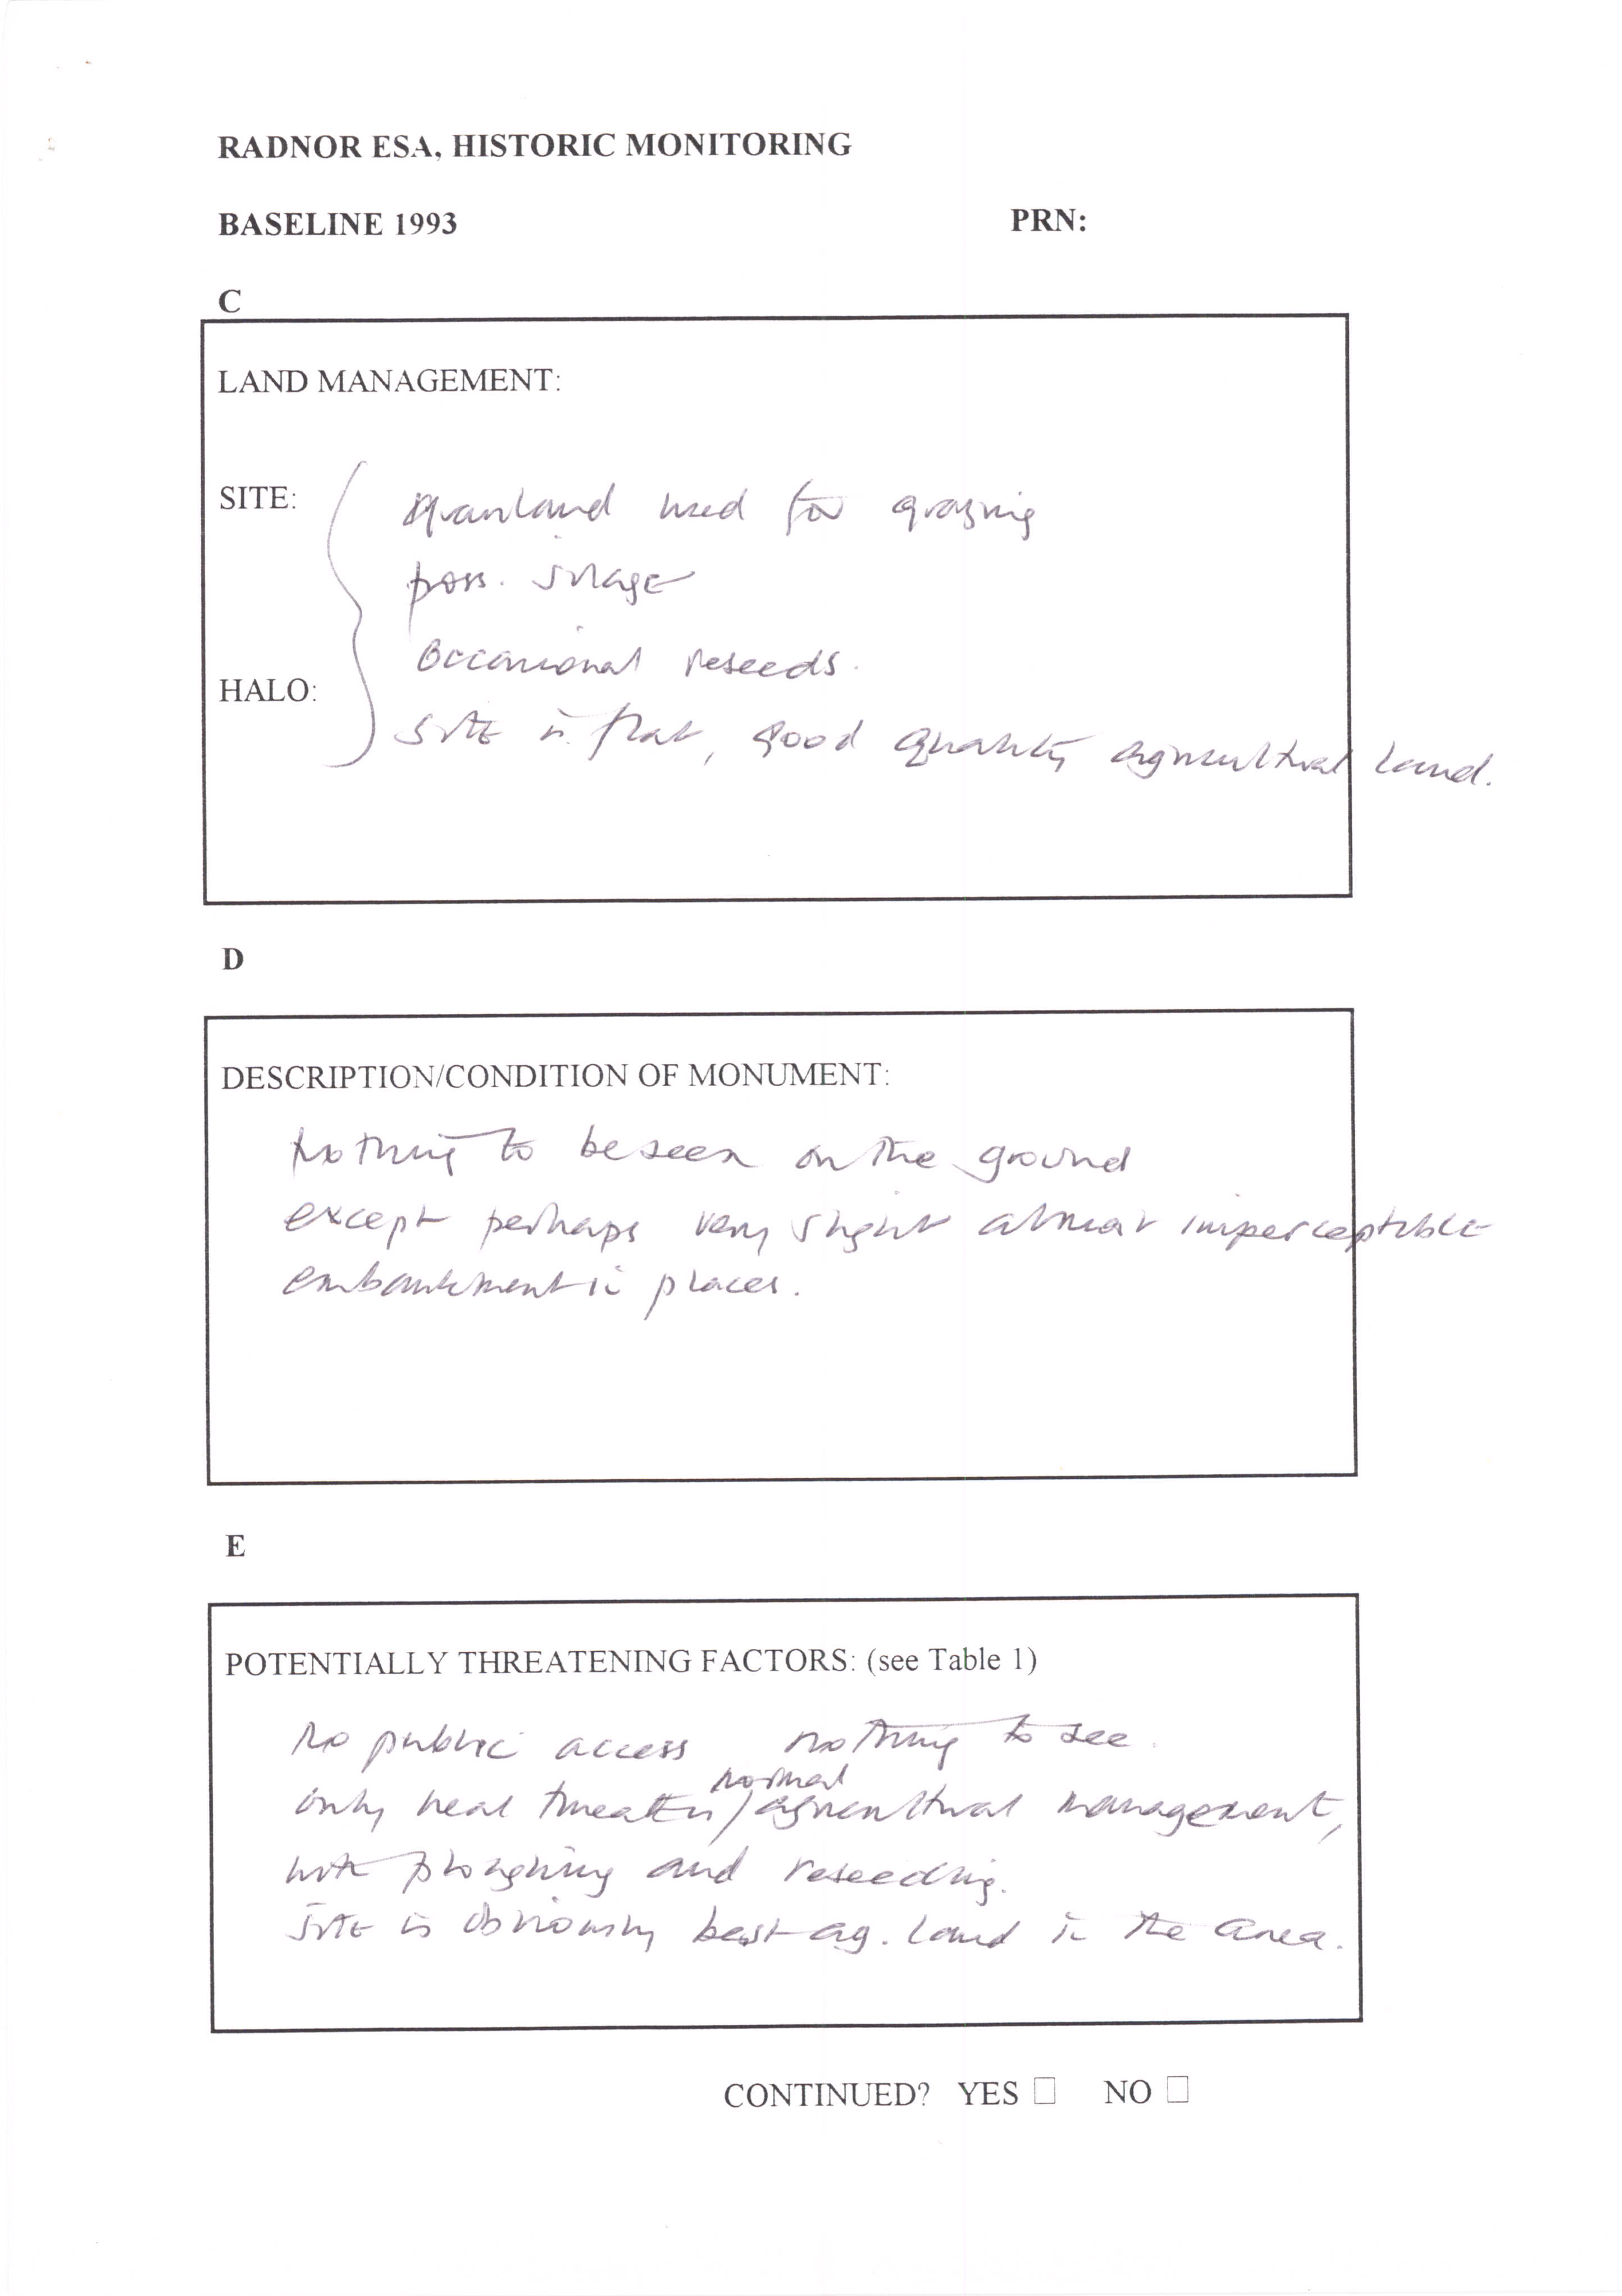 RADNOR ESA, HISTORIC MONITORING
BASELINE 1993 PRN:
C
LAND MANAGEMENT:
SITE: grassland used for grazing
poss. silage
Occasional reseeds.
HALO:
site is flat, good quality agricultural land.
D
DESCRIPTION/CONDITION OF MONUMENT:
Nothing to be seen on the ground
except perhaps very slight almost imperceptible
embankment in places.
E
POTENTIALLY THREATENING FACTORS: (see Table 1)
No public access nothing to see.
normal
only real threat is / agricultural management,
with ploughing and reseeding.
site is obviously best ag. land in the area.
CONTINUED? YES □ NO □